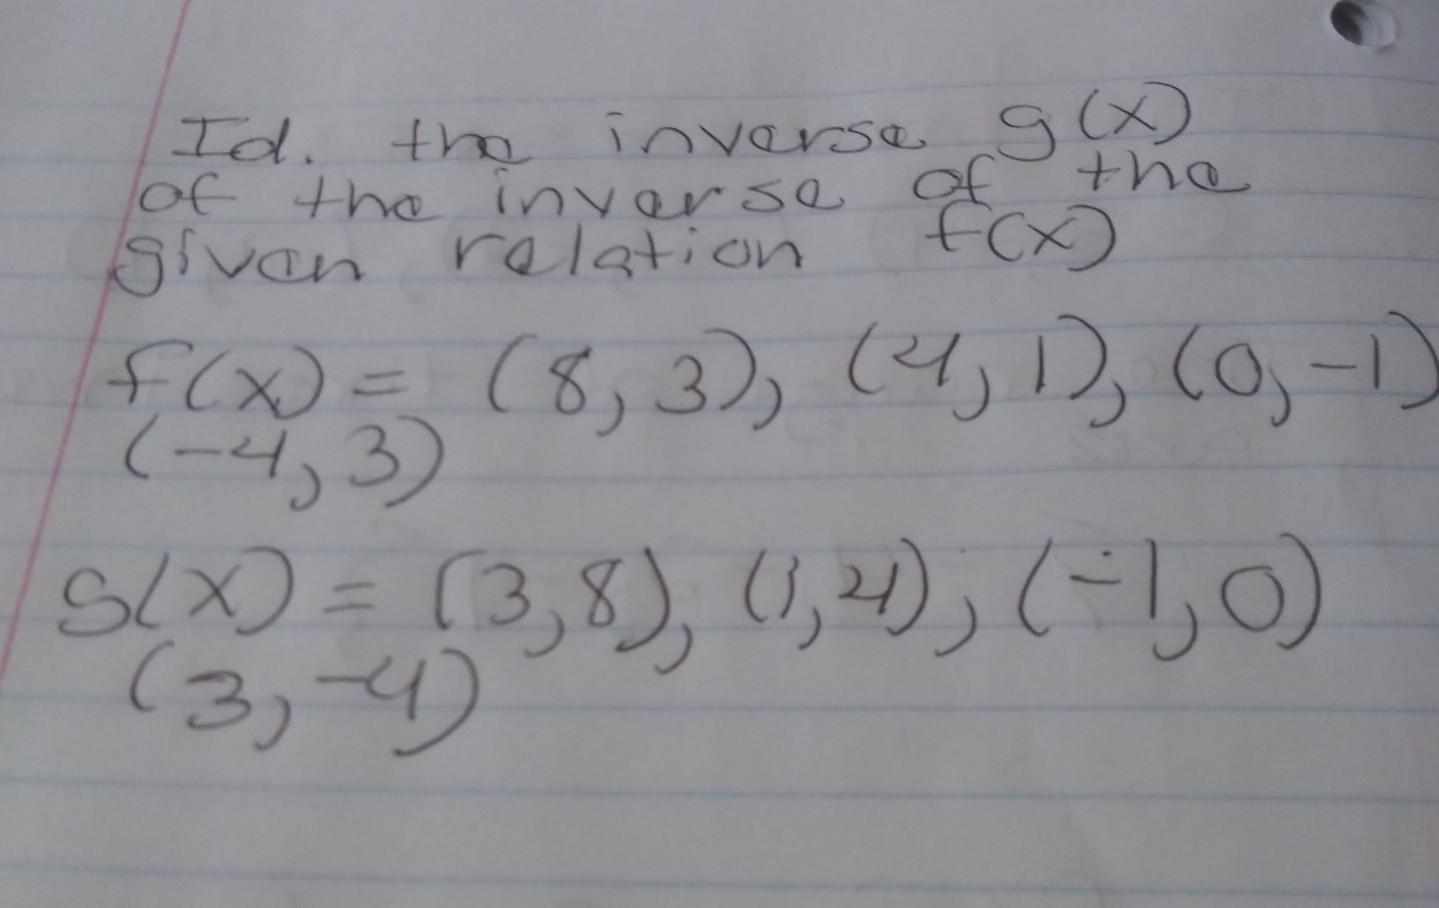 Id. the inverse g(x)
of the inverse of the
given relation f(x)
f(x) = (8, 3), (4, 1), (0, -1)
(-4, 3)
g(x) = (3, 8), (1, 4), (-1, 0)
(3, -4)